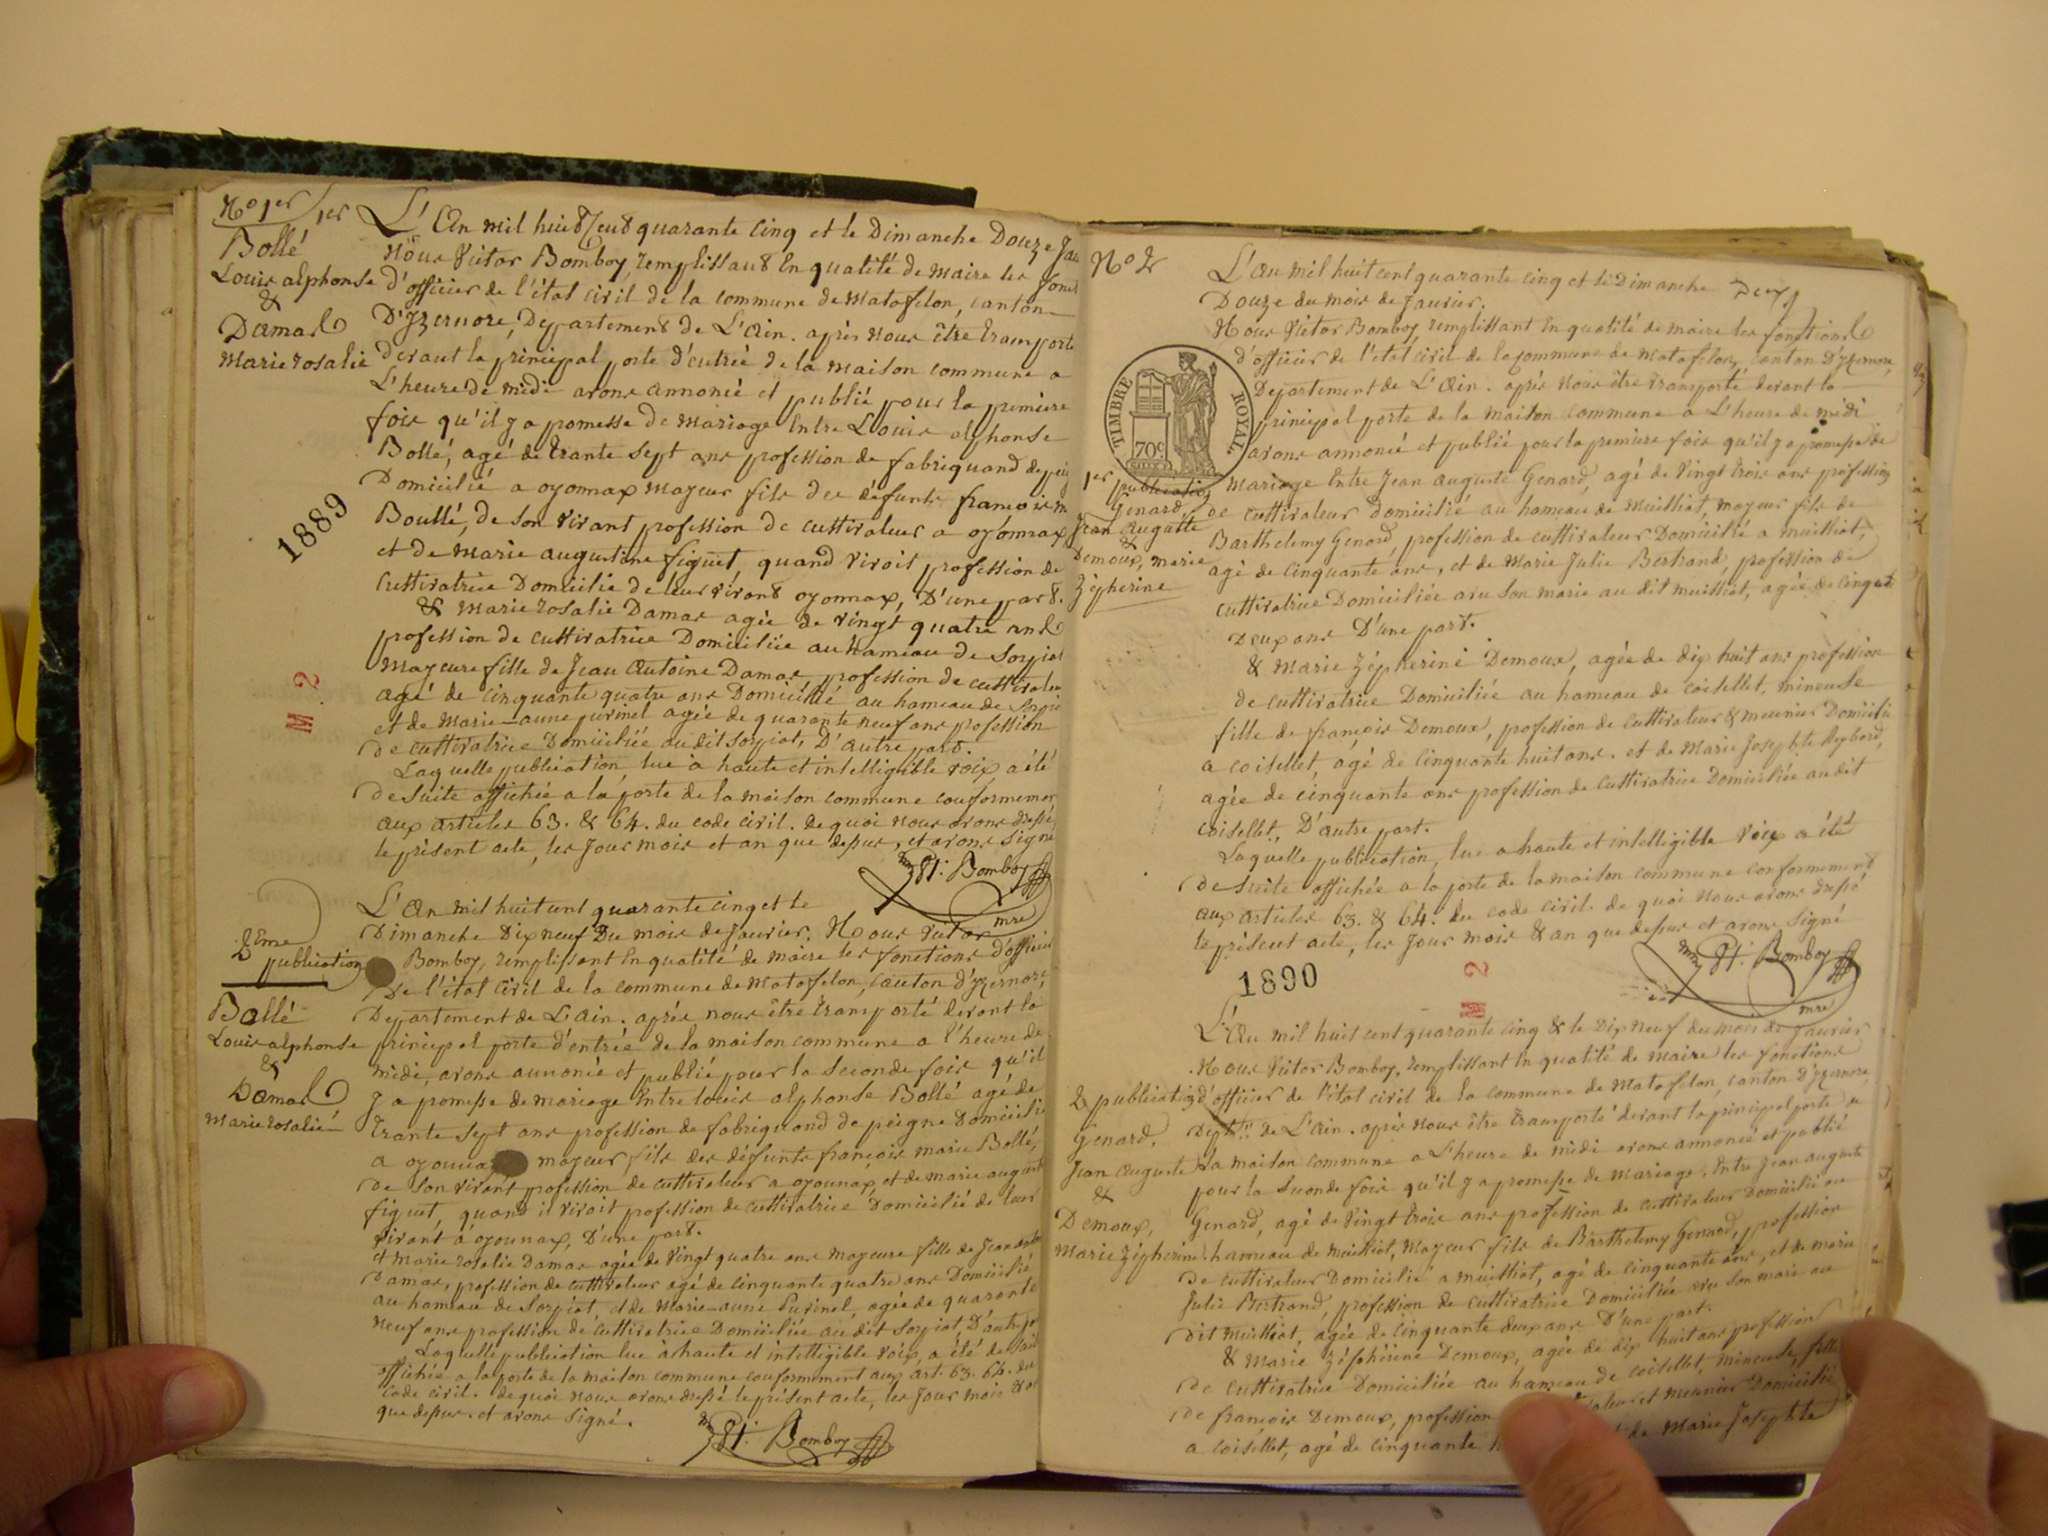 No 1er 1er
Bollé
Louis alphonse
&
Damas
Marie rosalie
1889
M. 2
L'An mil huit Cent quarante Cinq et le Dimanche Douze Jan
Nous Victor Bomboy, remplissant En qualité de maire les fonct
d'officier de l'état civil de la commune de Matafelon, canton
D'Izernore, Département de L'Ain. après nous être transporté
devant la principal porte d'entrée de la maison commune a
L'heure de midi avons annoncé et publié pour la première
fois qu'il y a promesse de Mariage Entre Louis alphonse
Bollé, agé de trante sept ans profession de fabriquand de peig
Domicilié a oyonnax Mayeur fils des défunts françois m
Boullé, de son vivant profession de cultivateur a oyonnax
et de Marie augustine figuet, quand vivoit profession de
Cultivatrice Domicilié de leur vivant oyonnax, D'une part.
& Marie rosalie Damas agée de vingt quatre ans
profession de cultivatrice Domiciliée au hameau de Sorpiat
Mayeure fille de Jean Antoine Damas profession de cultivateur
agé de cinquante quatre ans Domicilié au hameau de Sorpia
et de Marie-anne purinel agée de quarante neuf ans profession
de cultivatrice Domiciliée au dit Sorpiat, D'autre part.
Laquelle publication, lue à haute et intelligible voix a été
de suite affichée a la porte de la maison commune conformemen
aux articles 63. & 64. du code civil. de quoi nous avons dressé
le présent acte, les Jour mois et an que dessus, et avons signé
Bomboy
mre
2ème
publication
Bollé
Louis alphonse
&
Damas
Marie rosalie
L'An mil huit cent quarante cinq et le
Dimanche Dix neuf Du mois de Janvier. Nous Victor
Bomboy, remplissant En qualité de maire les fonctions d'officier
de l'état civil de la commune de Matafelon, canton d'Izernore,
Département de L'ain. après nous être transporté devant la
principal porte d'entrée de la maison commune a l'heure de
midi, avons annoncé et publié pour la seconde fois qu'il
y a promesse de mariage Entre louis alphonse Bollé agé de
trante sept ans profession de fabriquand de peigne Domicilié
a oyonnax mayeur fils des défunts françois marie Bollé,
de son vivant profession de cultivateur a oyonnax, et de marie august
figuet, quand il vivoit profession de cultivatrice Domicilié de leur
vivant à oyonnax, D'une part.
et Marie rosalie Damas agée de vingt quatre ans mayeure fille de Jean
Damas, profession de cultivateur agé de cinquante quatre ans Domicilié
au hameau de Sorpiat, et de Marie-anne Purinel, agée de quarante
neuf ans profession de cultivatrice Domiciliée au dit Sorpiat, D'autre
Laquelle publication lue à haute et intelligible voix, a été de suit
affichée a la porte de la maison commune conformement aux art. 63. 64. du
code civil. de quoi nous avons dressé le présent acte, les Jour mois
que dessus. et avons signé.
Bomboy
No 2
L'an mil huit cent quarante cinq et le Dimanche
Douze du mois de Janvier.
Nous Victor Bomboy remplissant En qualité de maire les fonctions
d'officier de l'état civil de la Commune de matafelon, canton D'Izernore,
Département de L'Ain. après nous être transporté devant la
principal porte de la maison commune a L'heure de midi
avons annoncé et publié pour la première fois qu'il y a promesse de
mariage Entre Jean auguste Genard, agé de vingt trois ans profession
de cultivateur domicilié au hameau de muithiat, mayeur fils de
Barthelemy Genard, profession de cultivateur Domicilié a muithiat,
agé de cinquante ans, et de Marie Julie Bertrand, profession de
cultivatrice Domiciliée avec son marie au dit muithiat, agée de cinquante
Deux ans D'une part.
& Marie Zépherine Demoux, agée de dix huit ans profession
de cultivatrice Domiciliée au hameau de coisellet, mineuse
fille de françois Demoux, profession de cultivateur & meunier Domicilié
a coisellet, agé de cinquante huit ans. et de Marie Josephte Reybard,
agée de cinquante ans profession de cultivatrice Domiciliée au dit
coisellet, D'autre part.
Laquelle publication, lue a haute et intelligible voix a été
de suite affichée a la porte de la maison commune conformement
aux articles 63. & 64. du code civil. de quoi nous avons dressé
le présent acte, les Jour mois & an que dessus et avons signé
Bomboy
mre
TIMBRE ROYAL
70c
1er publication
Genard,
Jean Auguste
&
Demoux, marie
Zépherine
1890
M 2
L'An mil huit cent quarante cinq & le Dix neuf du mois de Janvier
Nous Victor Bomboy, remplissant En qualité de maire les fonctions
d'officier de l'état civil de la commune de Matafelon, canton D'Izernore,
Deptmt de L'Ain. après nous être transporté devant la principal porte de
La maison commune a L'heure de midi avons annoncé et publié
pour la seconde fois qu'il y a promesse de mariage. Entre Jean auguste
Genard, agé de vingt trois ans profession de cultivateur Domicilié au
hameau de muithiat, Mayeur fils de Barthelemy Genard, profession
de cultivateur Domicilié a muithiat, agé de cinquante ans, et de marie
Julie Bertrand, profession de cultivatrice Domiciliée avec son marie au
dit muithiat, agée de cinquante deux ans D'une part.
& Marie Zéphérine Demoux, agée de dix huit ans profession
de cultivatrice Domiciliée au hameau de coisellet, mineuse, fille
de françois Demoux, profession et meunier Domicilié
a coisellet, agé de cinquante de Marie Josephte
2 publication
Genard,
Jean Auguste
&
Demoux,
Marie zépherine